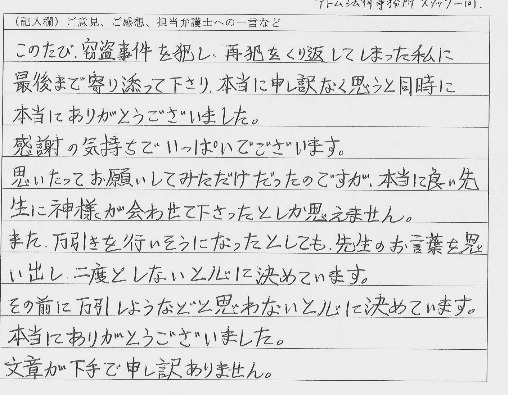 アトム法律事務所 スタッフ一同.
(記入欄) ご意見、ご感想、担当弁護士への一言など
このたび、窃盗事件を犯し、再犯をくり返してしまった私に
最後まで寄り添って下さり、本当に申し訳なく思うと同時に
本当にありがとうございました。
感謝の気持ちでいっぱいでございます。
思いたってお願いしてみただけだったのですが、本当に良い先
生に神様が会わせて下さったとしか思えません。
また、万引きを行いそうになったとしても、先生のお言葉を思
い出し、二度としないと心に決めています。
その前に万引しようなどと思わないと心に決めています。
本当にありがとうございました。
文章が下手で申し訳ありません。